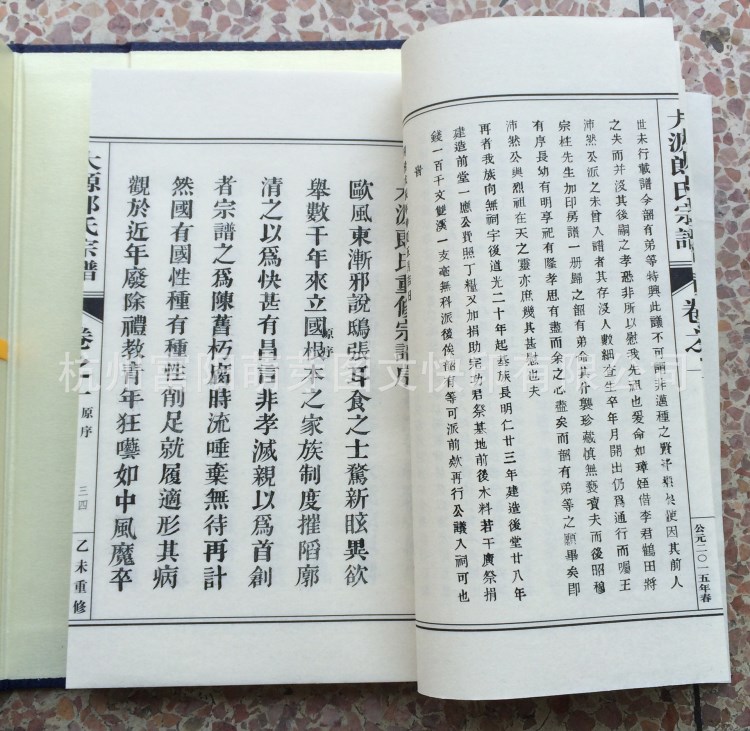 大源郎氏宗譜
卷之一
公元二〇一五年春
世未行載譜今韶有弟等特興此議不可謂非邁種之賢使因其前人
之失而并沒其後嗣之孝恐非所以慰我先也爰命如璋姪偕李君鶴田將
沛然公派之未曾入譜者其存沒人數細查生卒年月開出仍爲通行而囑王
宗柱先生加印房譜一册歸之韶有弟命其什襲珍藏慎無褻瀆夫而後昭穆
有序長幼有明享祀有隆孝思有盡而余之心盡矣而韶有弟等之願畢矣卽
沛然公與烈祖在天之靈亦庶幾其甚慰也夫
再者我族向無祠宇後道光二十年起經族長明仁廿三年建造後堂廿八年
建造前堂一應公費照丁糧又加捐助宗功君祭基地前後木料若干廣祭捐
錢一百千文雙溪一支毫無科派後俟韶有等可派前欵再行公議入祠可也
大源郎氏重修宗譜序
原序
歐風東漸邪說鴟張耳食之士驚新眩異欲
舉數千年來立國根本之家族制度摧陷廓
清之以爲快甚有昌言非孝滅親以爲首創
者宗譜之爲陳舊朽腐時流唾棄無待再計
然國有國性種有種性削足就履適形其病
觀於近年廢除禮教青年狂囈如中風魔卒
大源郎氏宗譜
卷
一
原序
三四
乙未重修
杭州富阳萌芽图文快印有限公司